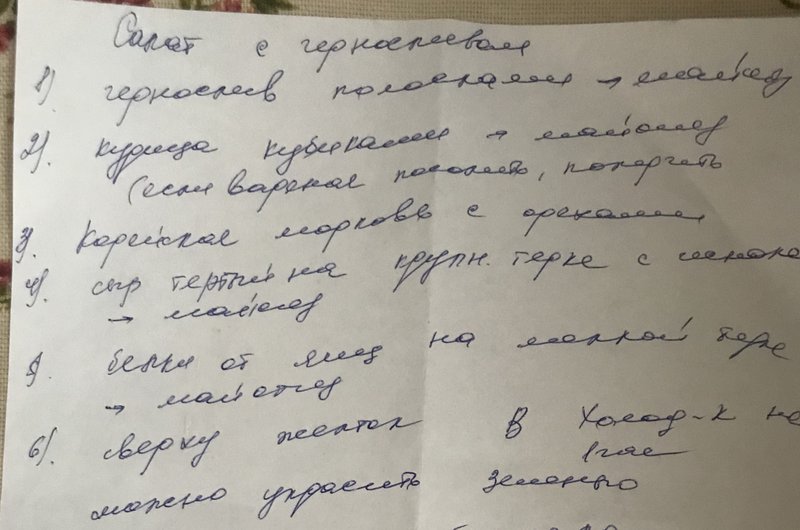 Салат с черносливом
1). чернослив полосками → майонез
2). курица кубиками → майонез
(если вареное посолить, поперчить
3). Корейская морковь с орехами
4). сыр тертый на крупн. терке с
→ майонез
5. белки от яиц на мелкой терке
→ майонез
6). сверху желток В холод-к на
1 час
можно украсить зеленью